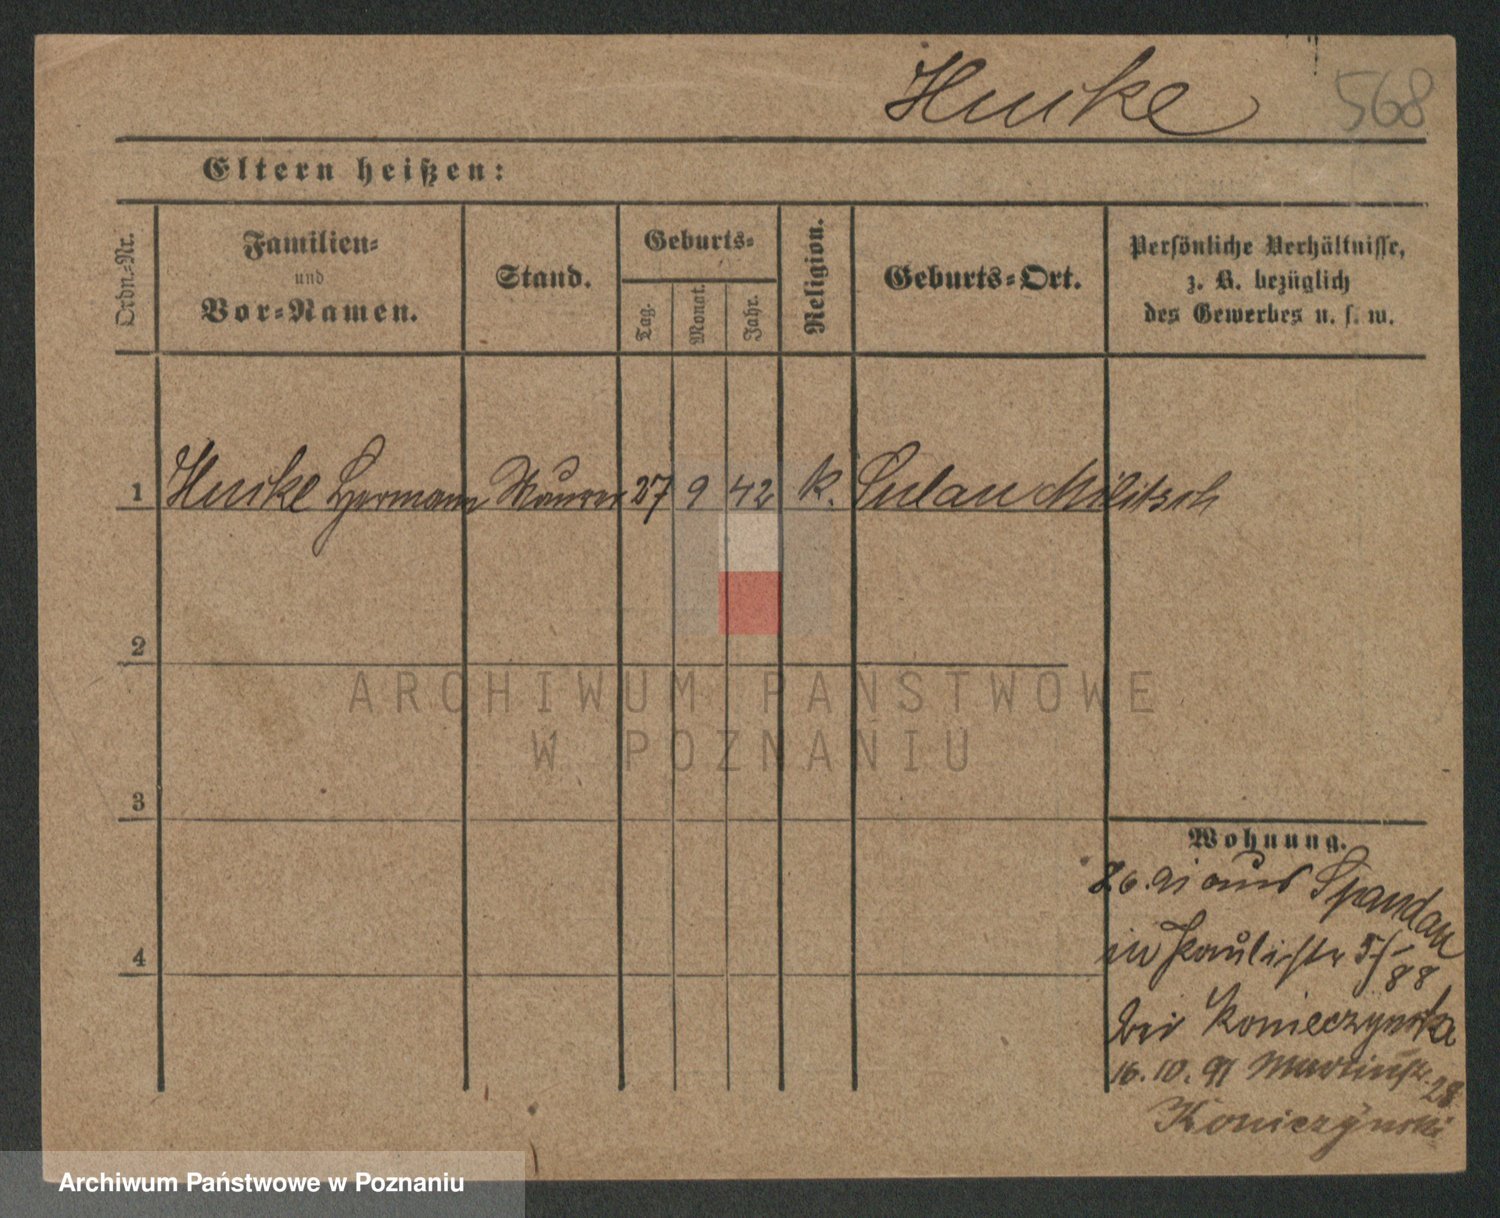 Hencke 568
Eltern heißen:
Ordn.-Nr.
Familien-
und
Vor-Namen.
Stand.
Geburts-
Tag.
Monat.
Jahr.
Religion.
Geburts-Ort.
Persönliche Verhältnisse,
z. B. bezüglich
des Gewerbes u. s. w.
1 Hencke Hermann Maurer 27 9 42 k. Sulau Militsch
2
ARCHIWUM PAŃSTWOWE
W POZNANIU
3
Wohnung.
aus Spandau
in Paulistr 5/
88
bei Konieczynska
4
16. 10. 91 Martinstr. 28
Konieczynski
Archiwum Państwowe w Poznaniu